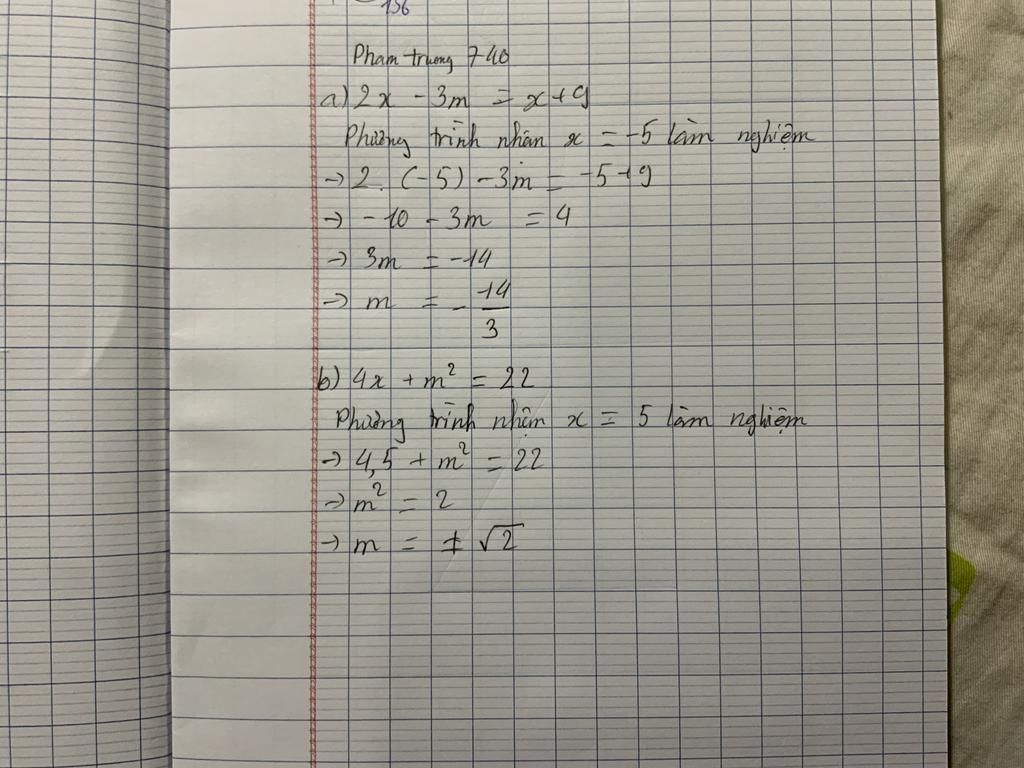 136
Pham trương 740
a) 2x - 3m = x + 9
Phương trình nhận x = -5 làm nghiệm
→ 2. (-5) - 3m = -5 + 9
→ -10 - 3m = 4
→ 3m = -14
→ m = - 14/3
b) 4x + m² = 22
Phương trình nhận x = 5 làm nghiệm
→ 4,5 + m² = 22
→ m² = 2
→ m = ± √2